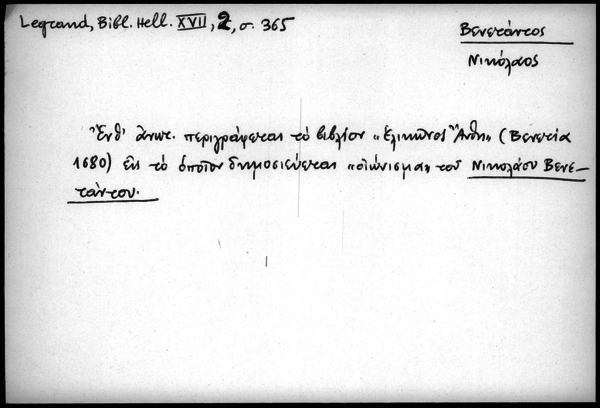 Legrand, Bibl. Hell. XVII, 2, σ. 365
Βενετάντος
Νικόλαος
Ἔνθ' ἄνωτ. περιγράφεται τὸ βιβλίον «Ἑλικῶνος Ἄνθη» (Βενετία
1680) εἰς τὸ ὁποῖον δημοσιεύεται «οἰώνισμα» τοῦ Νικολάου Βενε-
τάντου.